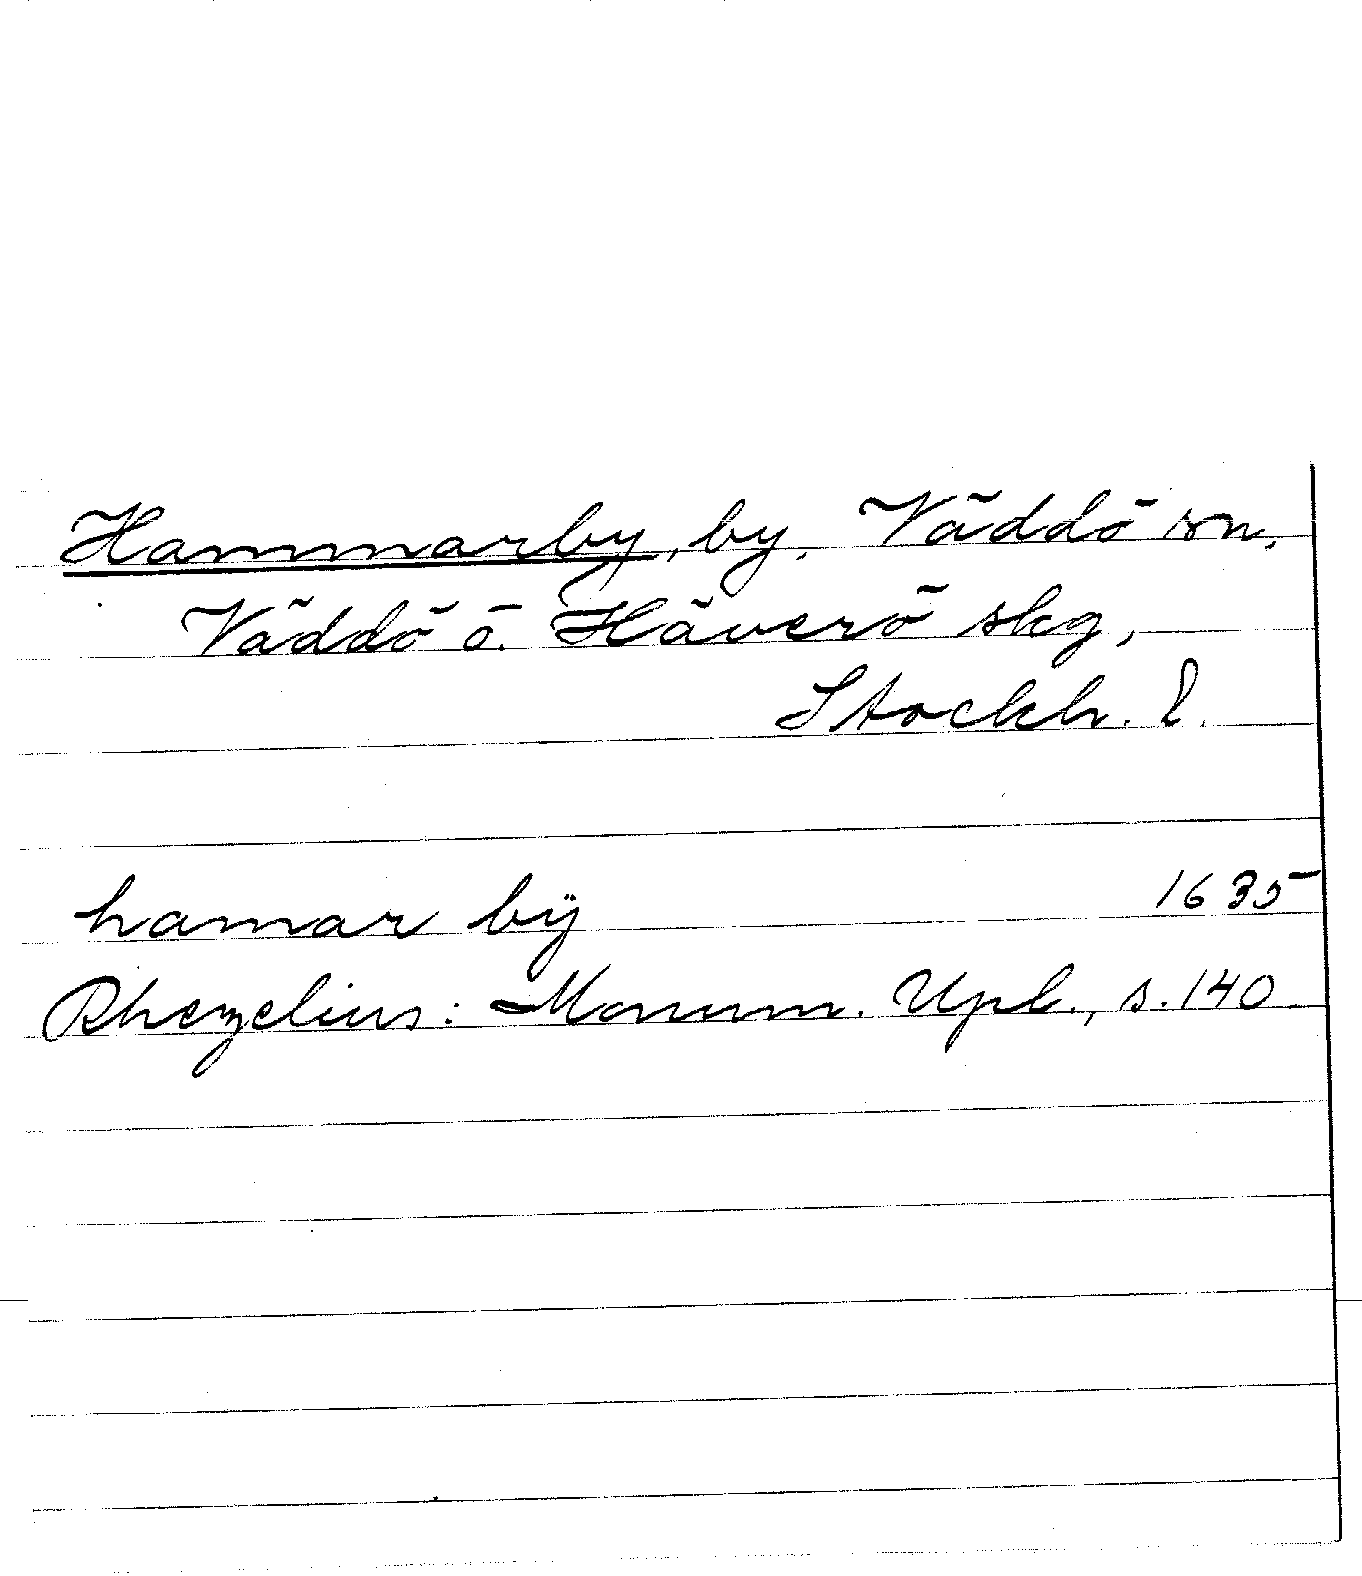 Hammarby, by, Väddö sn,
Väddö o. Häverö skg,
Stockh. l.
hamar bÿ 1635
Rhezelius: Monum. Upl., s. 140